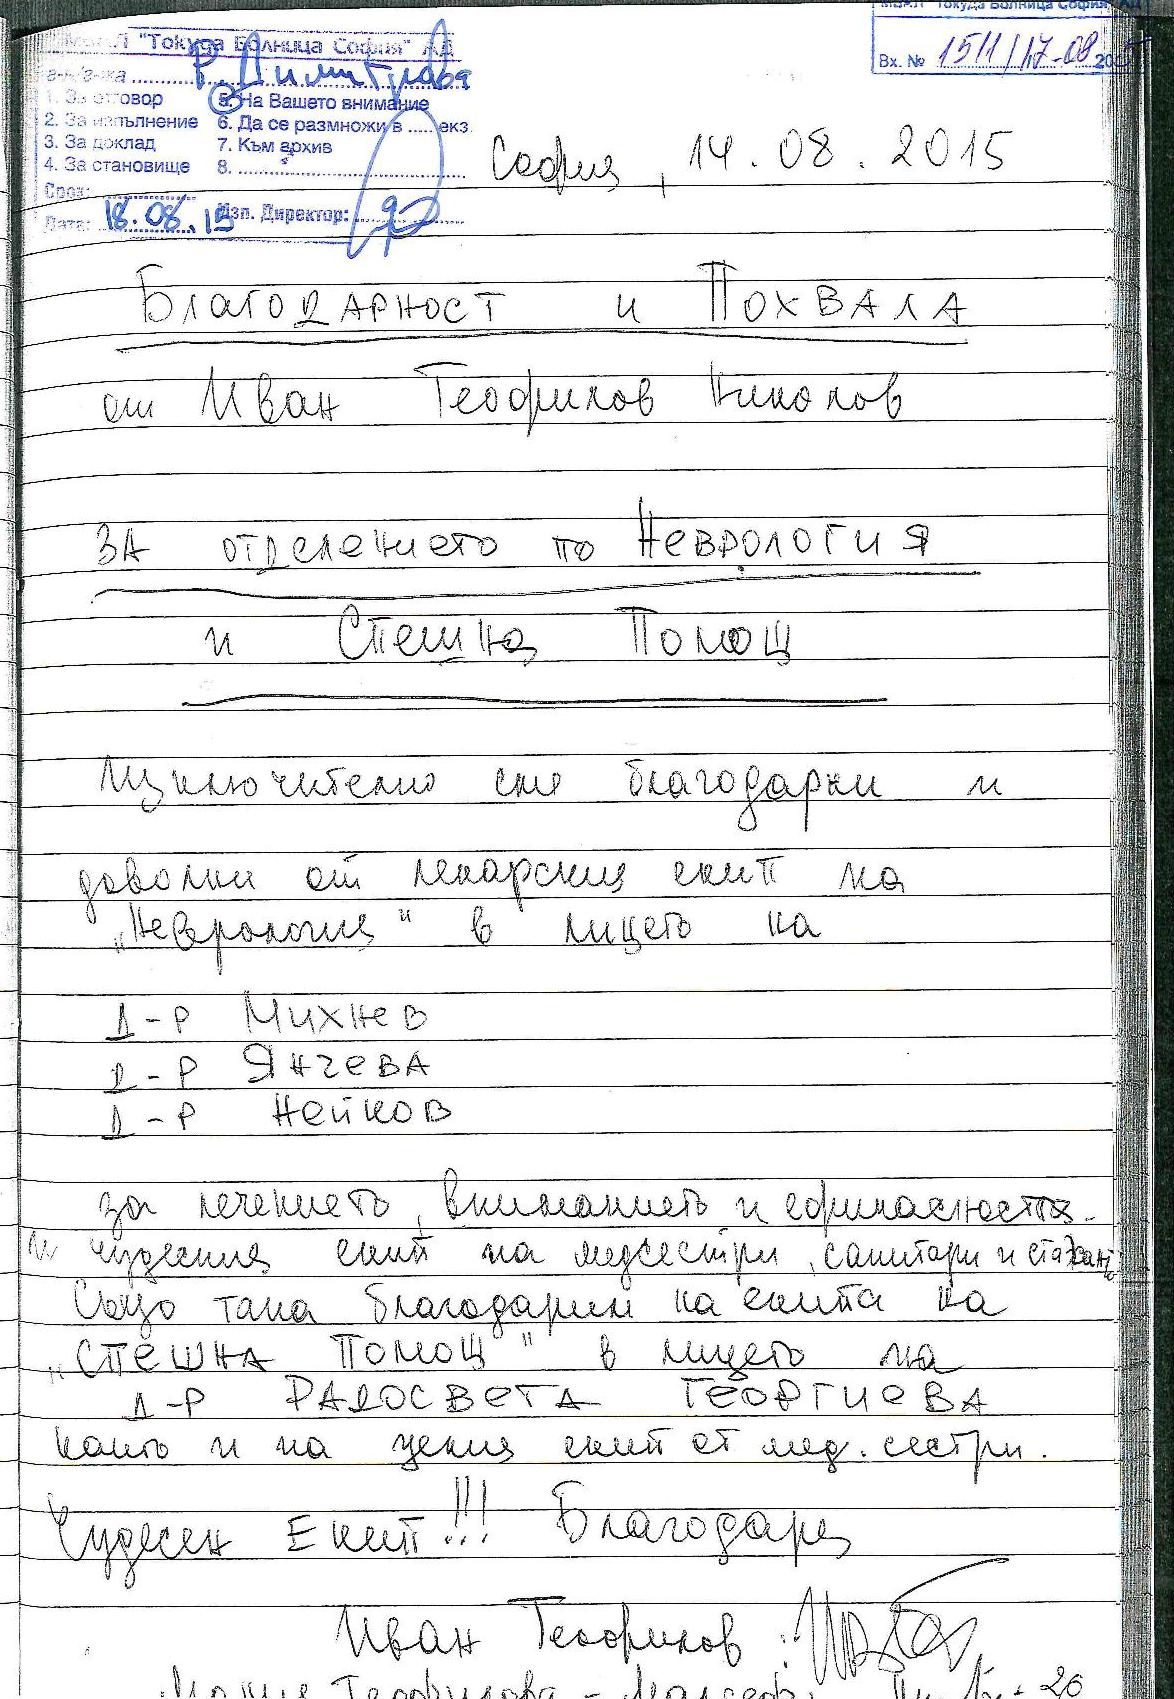 МБАЛ "Токуда Болница София" АД
Вх. № 1511/17-08
г-н/г-жа Р. Димитрова
1. За отговор 5. На Вашето внимание
2. За изпълнение 6. Да се размножи в ..... екз.
3. За доклад 7. Към архив
4. За становище 8. ........
Срок:
Дата: 18.08.15 Изп. Директор:
София, 14.08.2015
Благодарност и Похвала
от Иван Теофилов Николов
за отделението по Неврология
и Спешна Помощ
Изключително сме благодарни и
доволни от лекарския екип на
„Неврология" в лицето на
Д-р Михнев
Д-р Янчева
Д-р Нейков
за лечението, вниманието и ефикасността.
и чудесния екип на медсестри, санитари и стажанти
Също така благодарим на екипа на
„Спешна Помощ" в лицето на
Д-р Радосвета Георгиева
както и на целия екип от мед. сестри.
Чудесен Екип!!! Благодаря
Иван Теофилов:
Теофилова -